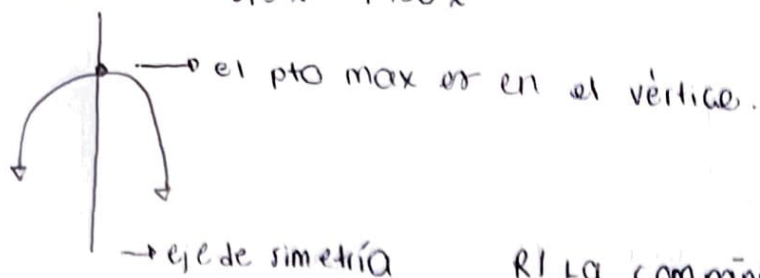 el pto max es en el vértice.
eje de simetría
R/ La